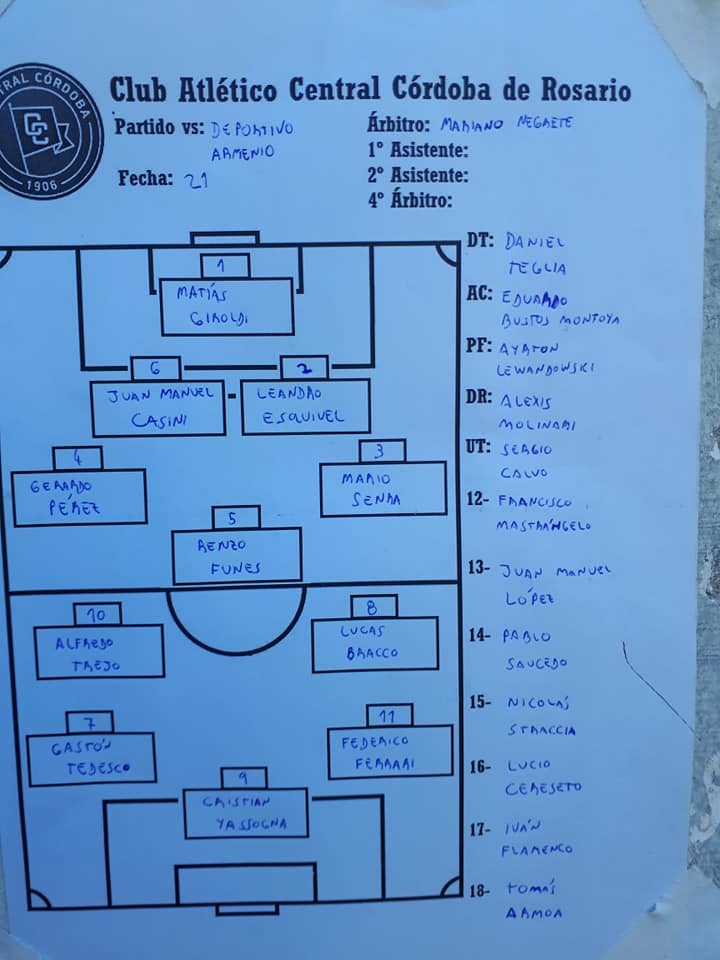 CENTRAL CÓRDOBA
CC
1906
Club Atlético Central Córdoba de Rosario
Partido vs: DEPORTIVO
ARMENIO
Fecha: 21
Árbitro: MARIANO NEGRETE
1º Asistente:
2º Asistente:
4º Árbitro:
1
MATÍAS
GIROLDI
6
JUAN MANUEL
CASINI
2
LEANDRO
ESQUIVEL
4
GERARDO
PÉREZ
3
MARIO
SENRA
5
RENZO
FUNES
10
ALFREDO
TREJO
8
LUCAS
BRACCO
7
GASTÓN
TEDESCO
11
FEDERICO
FERRARI
9
CRISTIAN
YASSOGNA
DT: DANIEL
TEGLIA
AC: EDUARDO
BUSTOS MONTOYA
PF: AYRTON
LEWANDOWSKI
DR: ALEXIS
MOLINARI
UT: SERGIO
CALVO
12- FRANCISCO
MASTRÁNGELO
13- JUAN MANUEL
LÓPEZ
14- PABLO
SAUCEDO
15- NICOLÁS
STRACCIA
16- LUCIO
CERESETO
17- IVÁN
FLAMENCO
18- TOMÁS
ARMOA